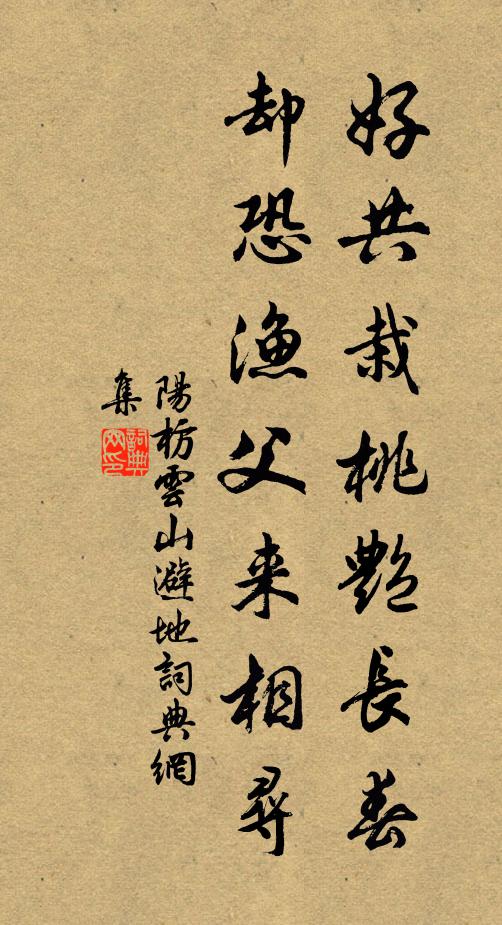 好共栽桃艷長春
却恐漁父来相尋
陽枋雲山避地詞典網
集
詞典網印